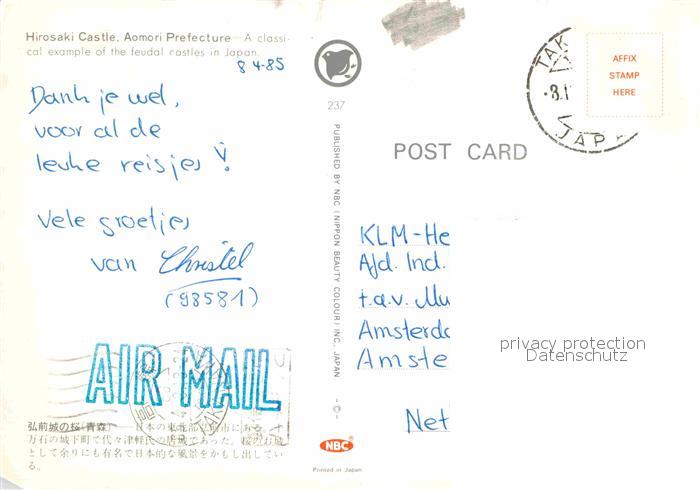 Hirosaki Castle, Aomori Prefecture – A classi-
cal example of the feudal castles in Japan.
8-4-85
Dank je wel,
voor al de
leuke reisjes !
Vele groetjes
van Christel
(98581)
AIR MAIL
弘前城の桜(青森)── 日本の東北部弘前市にある、十
万石の城下町で代々津軽氏の居城であった。桜のお城
として余りにも有名で日本的な風景をかもし出してい
る。
237
PUBLISHED BY NBC (NIPPON BEAUTY COLOUR) INC. JAPAN
-©-
NBC
Printed in Japan
POST CARD
TAK
JAP
AFFIX
STAMP
HERE
KLM-He
Afd. Ind.
t.a.v. Mu
Amsterda
Amste
Net
privacy protection
Datenschutz